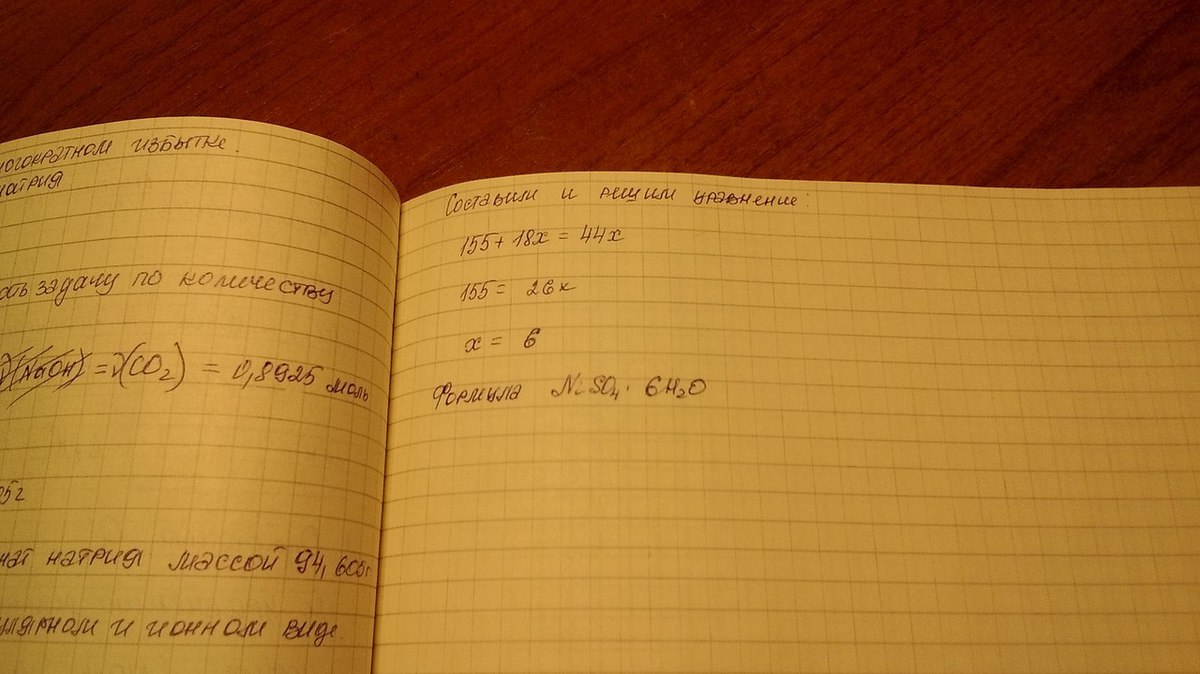 ногократном избытке.
натрия
ать задачу по количеству
ν(NaOH) = ν(CO₂) = 0,8925 моль
95г
нат натрия массой 94,605г
улярном и ионном виде
Составим и решим уравнение:
155 + 18x = 44x
155 = 26x
x = 6
Формула NiSO₄ · 6H₂O